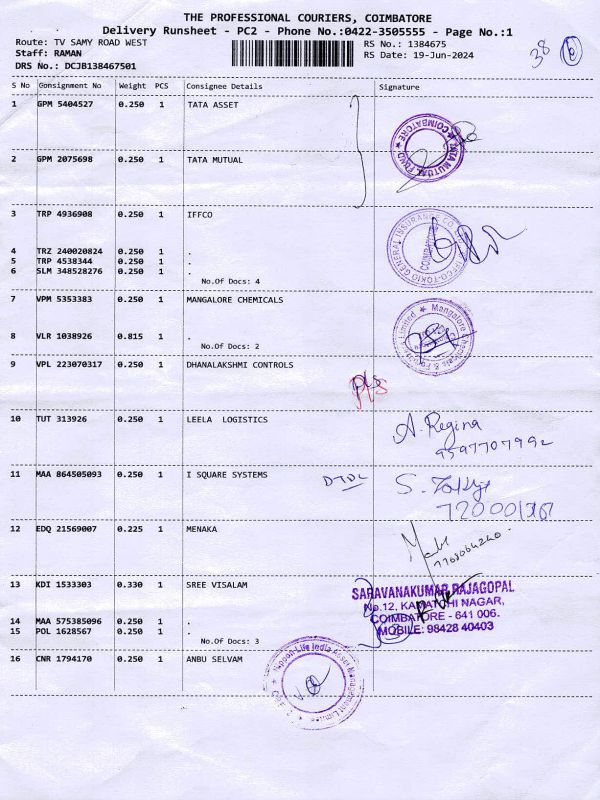 THE PROFESSIONAL COURIERS, COIMBATORE
Delivery Runsheet - PC2 - Phone No.:0422-3505555 - Page No.:1
Route: TV SAMY ROAD WEST RS No.: 1384675
Staff: RAMAN RS Date: 19-Jun-2024
DRS No.: DCJB138467501
38 6
S No Consignment No Weight PCS Consignee Details Signature
1 GPM 5404527 0.250 1 TATA ASSET
TATA MUTUAL FUND ★ COIMBATORE ★
2 GPM 2075698 0.250 1 TATA MUTUAL
3 TRP 4936908 0.250 1 IFFCO
IFFCO-TOKIO GENERAL INSURANCE CO. COIMBATORE
4 TRZ 240020824 0.250 1 .
5 TRP 4538344 0.250 1 .
6 SLM 348528276 0.250 1 .
No.Of Docs: 4
7 VPM 5353383 0.250 1 MANGALORE CHEMICALS
Mangalore Chemicals & Fertilizers Limited ★
8 VLR 1038926 0.815 1 .
No.Of Docs: 2
9 VPL 223070317 0.250 1 DHANALAKSHMI CONTROLS
10 TUT 313926 0.250 1 LEELA LOGISTICS A. Regina
9597707992
11 MAA 864505093 0.250 1 I SQUARE SYSTEMS DTDC S.
12 EDQ 21569007 0.225 1 MENAKA
13 KDI 1533303 0.330 1 SREE VISALAM
SARAVANAKUMAR RAJAGOPAL
No.12, KAMATCHI NAGAR,
COIMBATORE - 641 006.
MOBILE: 98428 40403
14 MAA 575385096 0.250 1 .
15 POL 1628567 0.250 1 .
No.Of Docs: 3
16 CNR 1794170 0.250 1 ANBU SELVAM
Nippon Life India Asset Management Limited